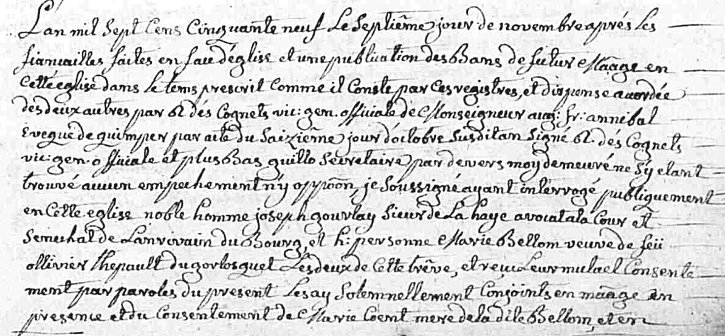 L'an mil Sept Cens Cinquante neuf Le Septième jour de novembre aprés Les
fiancailles faites en face d'église et une publication des Bans de futur Mâage en
Cette eglise dans le tems prescrit Comme il Conste par Ces registres, et dispense accordée
des deux autres par des Cognets vic: gen: officiale de Monseigneur aug: fr: annibal
Eveque de quimper par acte du Saizième jour d'octobre Susdit an Signé des Cognets
vic: gen: officiale et plus Bas guillo Sécrétaire par devers moy demeuré ne S'y etant
trouvé aucun empechement n'y oppôôn, je Soussigné ayant interrogé publiquement
en Cette eglise noble homme joseph gourlay Sieur de La haye avocat a la Cour et
Senechal de Lanrivain du Bourg, et h: personne Marie Bellom veuve de feü
ollivier Thepault du Les deux de Cette trêve, et reçu Leur mutuel Consente
ment par paroles du present Les ay Solemnellement Conjoints en mâage en
presence et du Consentement de Marie Coent mere de la dite Bellom et en